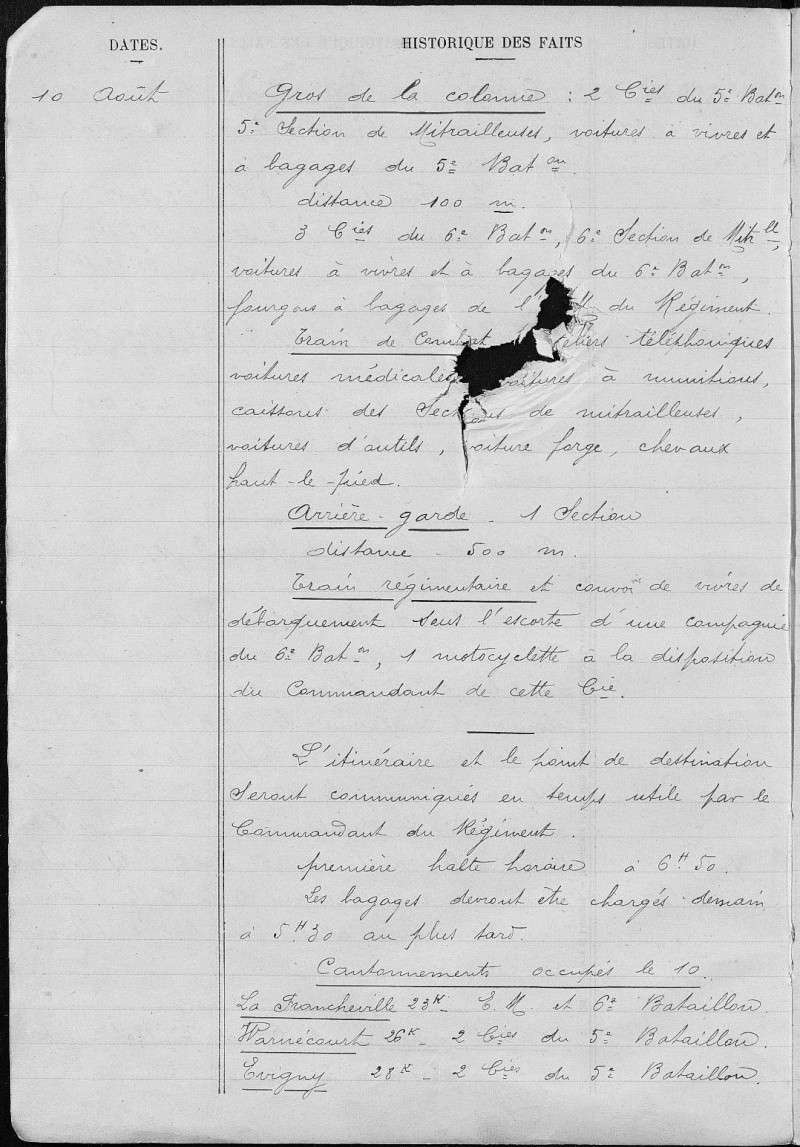 DATES.
HISTORIQUE DES FAITS
10 Août
Gros de la colonne : 2 Cies du 5e Baton
5e Section de Mitrailleuses, voitures à vivres et
à bagages du 5e Baton.
distance 100 m.
3 Cies du 6e Baton, 6e Section de Mitrlle,
voitures à vivres et à bagages du 6e Baton,
fourgons à bagages de l' du Régiment.
Train de Combat téléphoniques
voitures médicales, voitures à munitions,
caissons des Sections de mitrailleuses,
voitures d'outils, voiture forge, chevaux
haut-le-pied.
Arrière-garde - 1 Section
distance - 500 m.
Train régimentaire et convoi de vivres de
débarquement sous l'escorte d'une compagnie
du 6e Baton, 1 motocyclette à la disposition
du Commandant de cette Cie.
L'itinéraire et le point de destination
seront communiqués en temps utile par le
Commandant du Régiment.
première halte horaire à 6H50.
Les bagages devront être chargés demain
à 5H30 au plus tard.
Cantonnements occupés le 10.
La Francheville 23K - E.M. et 6e Bataillon.
Warnécourt 26K - 2 Cies du 5e Bataillon.
Evigny 28K - 2 Cies du 5e Bataillon.